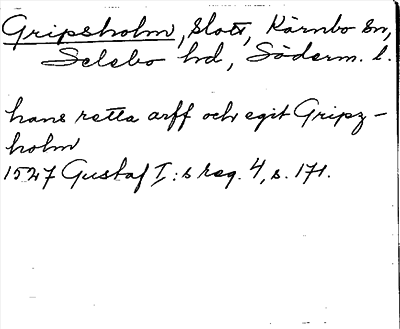 Gripsholm, slott, Kärnbo sn,
Selebo hd, Söderm. l.
hans retta arff och egit Gripz-
holm
1527 Gustaf I:s reg. 4, s. 171.